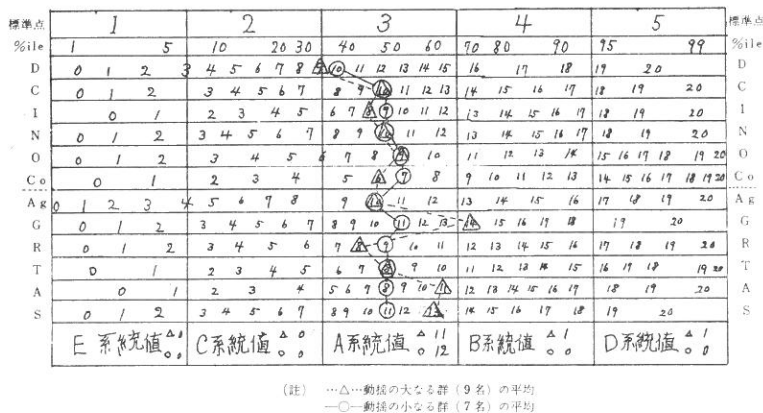 標準点 1 2 3 4 5 標準点
%ile 1 5 10 20 30 40 50 60 70 80 90 95 99 %ile
D 0 1 2 3 4 5 6 7 8 9 10 11 12 13 14 15 16 17 18 19 20 D
C 0 1 2 3 4 5 6 7 8 9 10 11 12 13 14 15 16 17 18 19 20 C
I 0 1 2 3 4 5 6 7 8 9 10 11 12 13 14 15 16 17 18 19 20 I
N 0 1 2 3 4 5 6 7 8 9 10 11 12 13 14 15 16 17 18 19 20 N
O 0 1 2 3 4 5 6 7 8 9 10 11 12 13 14 15 16 17 18 19 20 O
Co 0 1 2 3 4 5 6 7 8 9 10 11 12 13 14 15 16 17 18 19 20 Co
Ag 0 1 2 3 4 5 6 7 8 9 10 11 12 13 14 15 16 17 18 19 20 Ag
G 0 1 2 3 4 5 6 7 8 9 10 11 12 13 14 15 16 17 18 19 20 G
R 0 1 2 3 4 5 6 7 8 9 10 11 12 13 14 15 16 17 18 19 20 R
T 0 1 2 3 4 5 6 7 8 9 10 11 12 13 14 15 16 17 18 19 20 T
A 0 1 2 3 4 5 6 7 8 9 10 11 12 13 14 15 16 17 18 19 20 A
S 0 1 2 3 4 5 6 7 8 9 10 11 12 13 14 15 16 17 18 19 20 S
E系統値 △ 0 ○ 0 C系統値 △ 0 ○ 0 A系統値 △ 11 ○ 12 B系統値 △ 1 ○ 0 D系統値 △ 1 ○ 0
(註) …△…動揺の大なる群(9名)の平均
—○—動揺の小なる群(7名)の平均